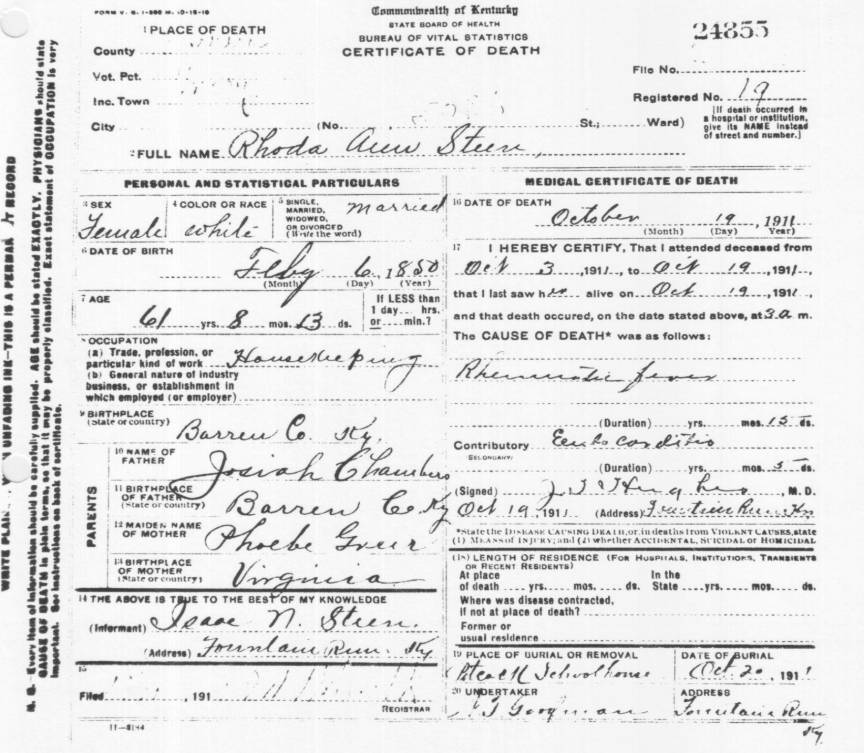 FORM V. S. 1-300 M. 10-15-10
Commonwealth of Kentucky
STATE BOARD OF HEALTH
BUREAU OF VITAL STATISTICS
CERTIFICATE OF DEATH
24855
1 PLACE OF DEATH
County
Vot. Pct.
Inc. Town
City (No. St.; Ward)
File No.
Registered No. 19
[If death occurred in a hospital or institution, give its NAME instead of street and number.]
2 FULL NAME Rhoda Ann Steen,
PERSONAL AND STATISTICAL PARTICULARS
3 SEX Female
4 COLOR OR RACE White
5 SINGLE, MARRIED, WIDOWED, OR DIVORCED (Write the word) Married
6 DATE OF BIRTH
Feby 6, 1850
(Month) (Day) (Year)
7 AGE
61 yrs. 8 mos. 13 ds.
If LESS than 1 day.... hrs. or.... min.?
8 OCCUPATION
(a) Trade, profession, or particular kind of work Housekeeping
(b) General nature of industry business, or establishment in which employed (or employer)
9 BIRTHPLACE
(State or country) Barren Co. Ky.
PARENTS
10 NAME OF FATHER Josiah Chambers
11 BIRTHPLACE OF FATHER (State or country) Barren Co Ky
12 MAIDEN NAME OF MOTHER Phoebe Greer
13 BIRTHPLACE OF MOTHER (State or country) Virginia
14 THE ABOVE IS TRUE TO THE BEST OF MY KNOWLEDGE
(Informant) Isaac N. Steen.
(Address) Fountain Run, Ky
15
Filed 191
REGISTRAR
11-3184
MEDICAL CERTIFICATE OF DEATH
16 DATE OF DEATH
October 19, 1911
(Month) (Day) (Year)
17 I HEREBY CERTIFY, That I attended deceased from
Oct 3, 1911, to Oct 19, 1911,
that I last saw her alive on Oct 19, 1911,
and that death occured, on the date stated above, at 3 a m.
The CAUSE OF DEATH* was as follows:
Rheumatic fever
(Duration) yrs. mos. 15 ds.
Contributory
SECONDARY
(Duration) yrs. mos. 5 ds.
(Signed) M. D.
Oct 19, 1911 (Address) Fountain Run Ky
*State the DISEASE CAUSING DEATH, or, in deaths from VIOLENT CAUSES, state
(1) MEANS OF INJURY; and (2) whether ACCIDENTAL, SUICIDAL OR HOMICIDAL
(18) LENGTH OF RESIDENCE (FOR HOSPITALS, INSTITUTIONS, TRANSIENTS
OR RECENT RESIDENTS)
At place of death yrs. mos. ds. In the State yrs. mos. ds.
Where was disease contracted,
If not at place of death?
Former or
usual residence
19 PLACE OF BURIAL OR REMOVAL
Schoolhouse
DATE OF BURIAL
Oct 20, 1911
20 UNDERTAKER
ADDRESS
Fountain Run
Ky.
N. B. Every item of information should be carefully supplied. AGE should be stated EXACTLY. PHYSICIANS should state
CAUSE OF DEATH in plain terms, so that it may be properly classified. Exact statement of OCCUPATION is very
important. See instructions on back of certificate.
WRITE PLAIN UNFADING INK—THIS IS A PERMA RECORD